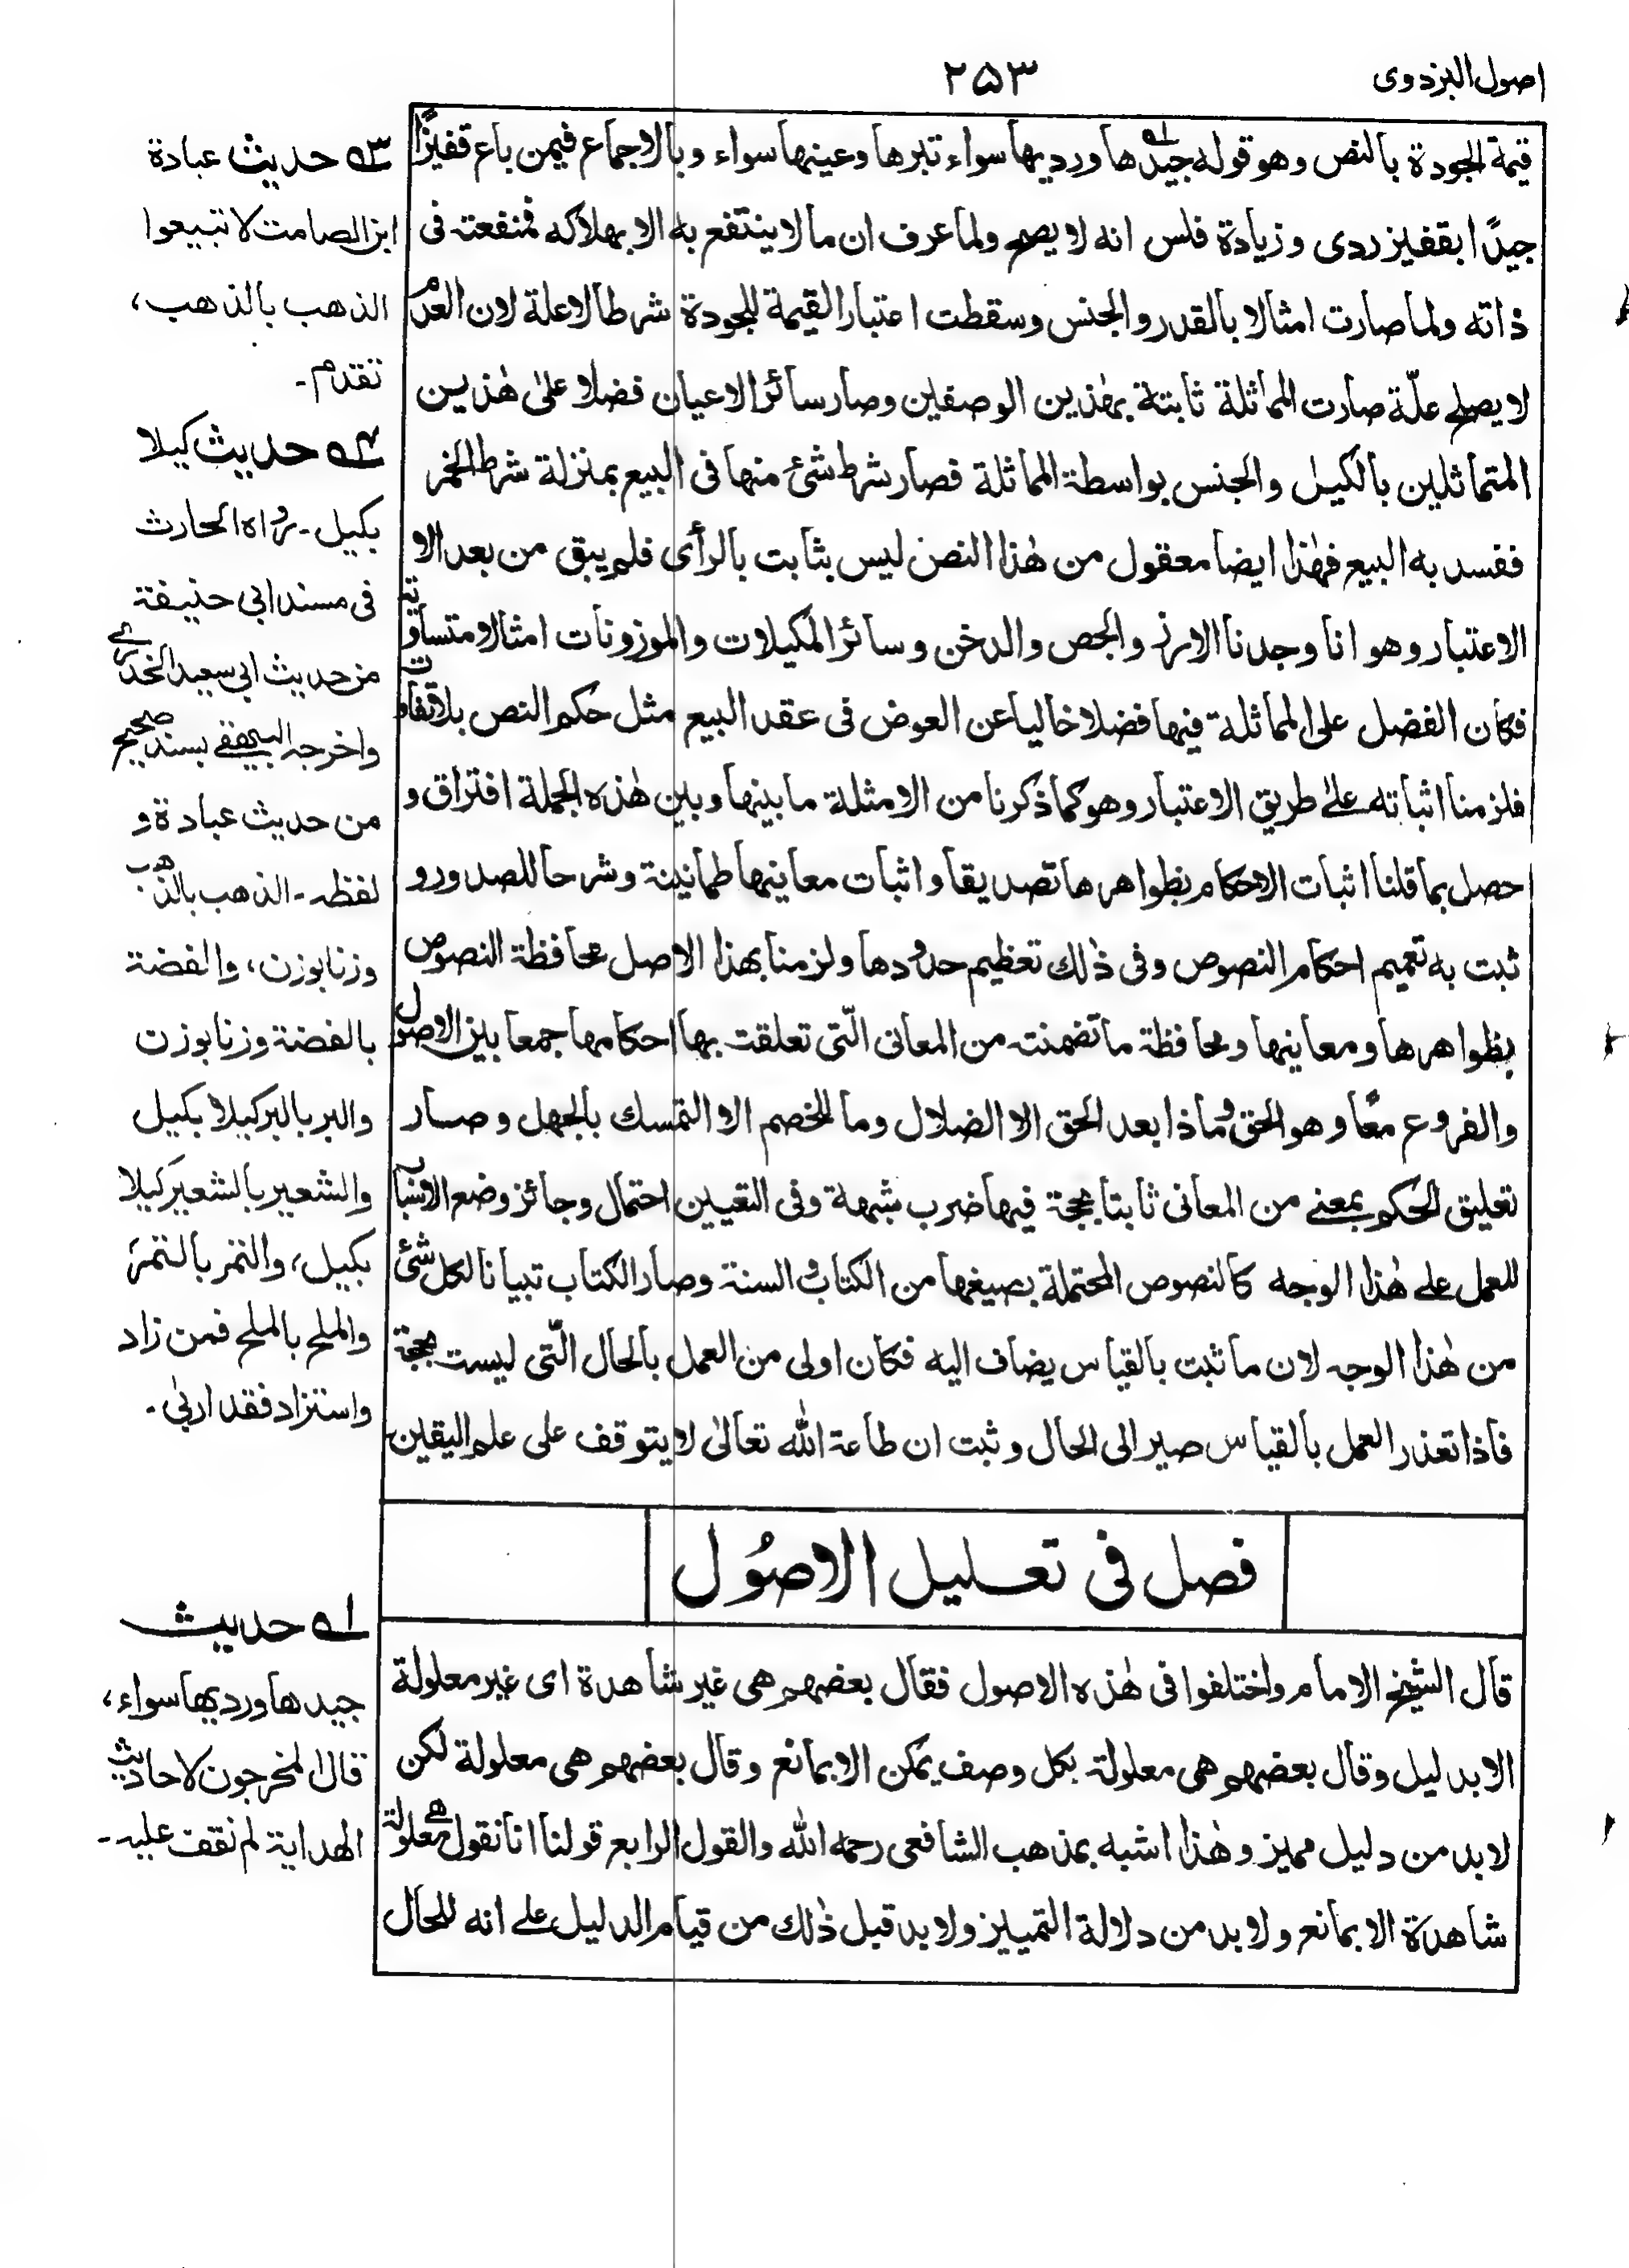 اصول البزدوی
۲۵۳
قيمة الجودة بالنص وهو قوله جيدها ورديها سواء تبرها وعينها سواء وبالاجماع فيمن باع قفيزًا
جيدًا بقفيز ردى وزيادة فلس انه لا يصح ولما عرف ان ما لا ينتفع به الا بهلاكه فمنفعته فى
ذاته ولما صارت امثالا بالقدر والجنس وسقطت اعتبار القيمة للجودة شرطا لا علة لان العدم
لا يصلح علّة صارت المماثلة ثابتة بهٰذين الوصفين وصار سائر الاعيان فضلا علىٰ هٰذين
المتماثلين بالكيل والجنس بواسطة المماثلة فصار شرط شئ منها فى البيع بمنزلة شرط الخمر
ففسد به البيع فهٰذا ايضا معقول من هٰذا النص ليس بثابت بالرأى فلم يبق من بعد الا
الاعتبار وهو انا وجدنا الارز والجص والدخن وسائر المكيلات والموزونات امثالا متساوية
فكان الفضل على المماثلة فيها فضلا خاليا عن العوض فى عقد البيع مثل حكم النص بلا تفاوت
فلزمنا اثباته علىٰ طريق الاعتبار وهو كما ذكرنا من الامثلة ما بينها وبين هٰذه الجملة افتراق و
حصل بما قلنا اثبات الاحكام بظواهرها تصديقا واثبات معانيها طمانينة وشرحا للصدور و
ثبت به تعميم احكام النصوص وفى ذٰلك تعظيم حدودها ولزمنا بهذا الاصل محافظة النصوص
بظواهرها ومعانيها ومحافظة ما تضمنته من المعانى الّتى تعلقت بها احكامها جمعا بين الاصول
والفروع معًا وهو الحق وماذا بعد الحق الا الضلال وما للخصم الا التمسك بالجهل وصار
تعليق الحكم بمعنى من المعانى ثابتا بحجة فيها ضرب شبهة وفى التعيين احتمال وجائز وضع الاسباب
للعمل على هٰذا الوجه كالنصوص المحتملة بصيغها من الكتاب والسنة وصار الكتاب تبيانا لكل شئ
من هٰذا الوجه لان ما ثبت بالقياس يضاف اليه فكان اولى من العمل بالحال الّتى ليست بحجة
فاذا تعذر العمل بالقياس صير الى الحال وثبت ان طاعة الله تعالىٰ لا يتوقف على علم اليقين
فصل فى تعليل الاصُول
قال الشيخ الامام واختلفوا فى هٰذه الاصول فقال بعضهم هى غير شاهدة اى غير معلولة
الا بدليل وقال بعضهم هى معلولة بكل وصف يمكن الا بمانع وقال بعضهم هى معلولة لكن
لا بد من دليل مميز وهٰذا اشبه بمذهب الشافعى رحمه الله والقول الرابع قولنا انا نقول هى معلولة
شاهدة الا بمانع ولا بد من دلالة التمييز ولا بد قبل ذٰلك من قيام الدليل على انه للحال
۳ حديث عبادة
ابن الصامت لا تبيعوا
الذهب بالذهب،
تقدم۔
۴ حديث كيلا
بكيل۔ رواه الحارث
فى مسند ابى حنيفة
من حديث ابى سعيد الخدرى
واخرجه البيهقى بسند صحيح
من حديث عبادة و
لفظه۔ الذهب بالذهب
وزنا بوزن، والفضة
بالفضة وزنا بوزن
والبر بالبر كيلا بكيل
والشعير بالشعير كيلا
بكيل، والتمر بالتمر،
والملح بالملح فمن زاد
واستزاد فقد اربىٰ۔
۱ حديث
جيدها ورديها سواء،
قال المخرجون لاحاديث
الهداية لم نقف عليه۔